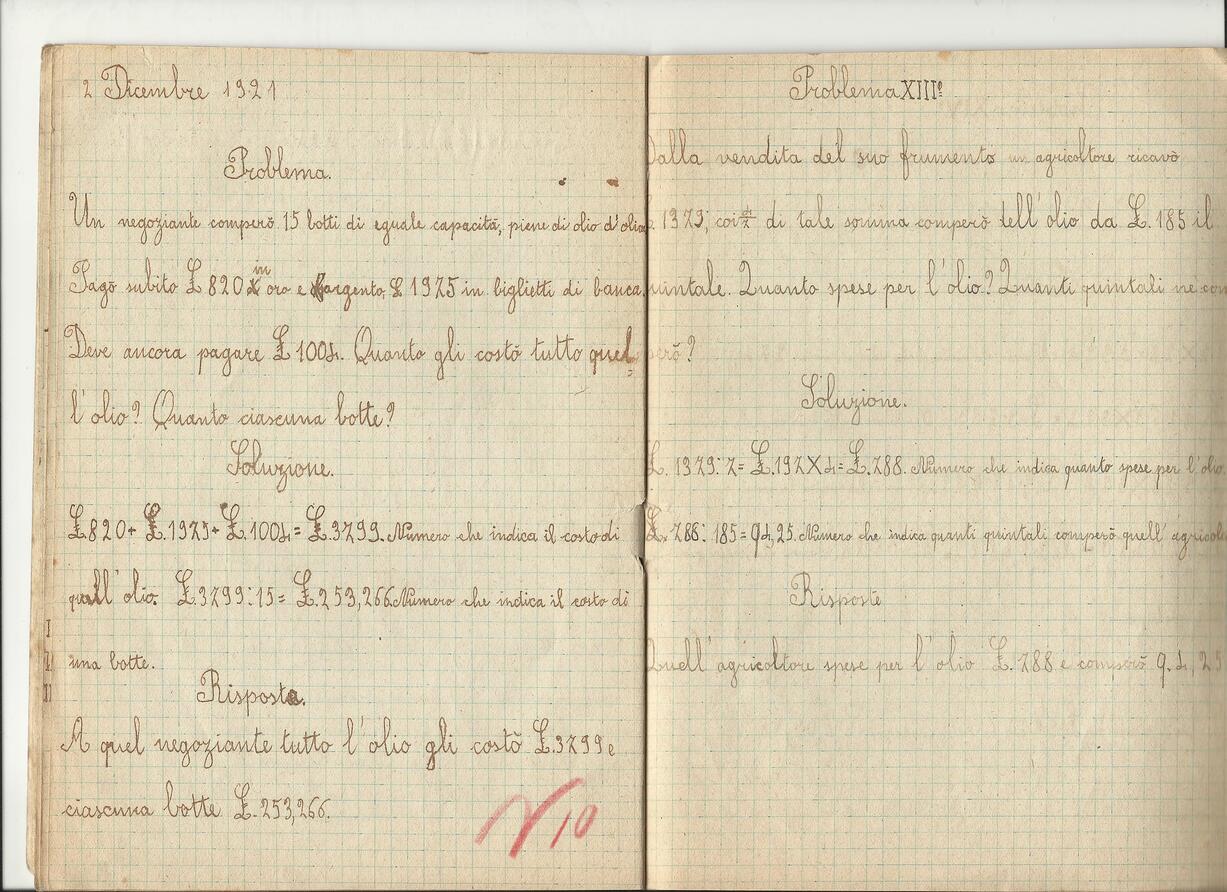 2 Dicembre 1921
Problema.
Un negoziante comperò 15 botti di eguale capacità, piene di olio d'oliva.
Pagò subito £ 820 in oro e argento, £ 1975 in biglietti di banca.
Deve ancora pagare £ 1004. Quanto gli costò tutto quel=
l'olio? Quanto ciascuna botte?
Soluzione.
£ 820+ £.1975+ £.1004= £.3799. Numero che indica il costo di
quell'olio. £.3799:15= £.253,266. Numero che indica il costo di
una botte.
Risposta.
A quel negoziante tutto l'olio gli costò £.3799 e
ciascuna botte £.253,266.
10
Problema XIII°
Dalla vendita del suo frumento un agricoltore ricavò
£. 1379; coi 4/7 di tale somma comperò dell'olio da £. 185 il
quintale. Quanto spese per l'olio? Quanti quintali ne com
però?
Soluzione.
£. 1379:7= £.197X4= £.788. Numero che indica quanto spese per l'olio
£. 788:185= q 4,25. Numero che indica quanti quintali comperò quell'agricol
Risposte
Quell'agricoltore spese per l'olio £. 788 e comperò q. 4,25